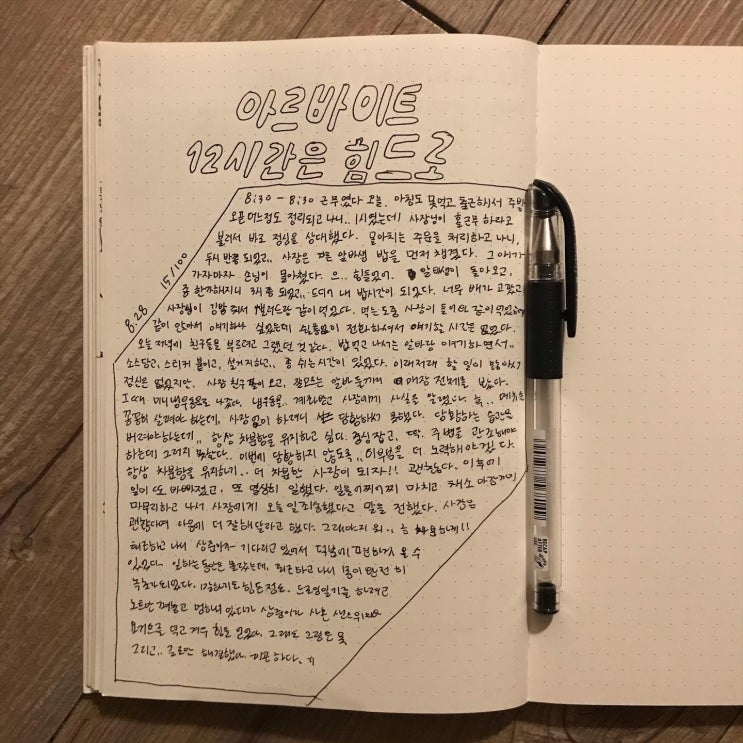 아르바이트
12시간은 힘드로
8:30 - 8:30 근무였다 오늘. 아침도 못먹고 출근해서 주방
오픈 어느정도 정리되고 나니.. 1시였는데 사장님이 홀근무 하라고
불러서 바로 점심을 상대했다. 몰아치는 주문을 처리하고 나니,
두시 반쯤 되었고.. 사장은 다른 알바생 밥을 먼저 챙겼다. 그 애가
가자마자 손님이 몰아쳤다. 으.. 힘들었어. 알바생이 돌아오고,
좀 한가해지니 3시 좀 되었고.. 드디어 내 밥시간이 되었다. 너무 배가 고팠고
8.28 15/100
사장님이 김밥 줘서 샐러드랑 같이 먹었다. 먹는 도중 사장이 들어와 같이 먹었
같이 앉아서 얘기하나 싶었는데 쉴틈없이 전화하셔서 얘기할 시간은 없었다.
오늘 저녁에 친구들을 부르려고 그랬던 것 같다. 밥먹고 나서는 알바랑 이야기하면서..
소스담고, 스티커 붙이고, 설거지하고.. 좀 쉬는시간이 있었다. 이래저래 할 일이 많아서
정신은 없었지만. 사장 친구 오고, 잘모르는 알바 매장 전체를 봤다.
사장에게 사실을 알렸다. 흑..
꼼꼼히 살펴야 하는데, 사장 없이 하려니 당황해서 못했다. 당황하는 습관은
버려야하는데.. 항상 차분함을 유지하고 싶다. 중심잡고, 딱. 주변을 관조해야
하는데 그러지 못한다.. 이번에 당황하지 않도록.. 이부분을 더 노력해야겠다.
항상 차분함을 유지하기.. 더 차분한 사람이 되자!! 괜찮다. 이후에
일이 또 바빠졌고, 또 열심히 일했다. 일을 어찌어찌 마치고 채소 마감까지
마무리하고 나서 사장에게 오늘 일 죄송했다고 말을 전했다. 사장은
괜찮다며 다음에 더 잘해달라고 했다. 그래야지 뭐..
퇴근하고 나니 삼촌이 기다리고 있어서 덕분에 편하게 올 수
있었다. 일하는 동안은 몰랐는데, 퇴근하고 나니 몸이 완전히
녹초가 되었다. 힘든정도. 드로잉일기를 하려고
노트만 꺼내놓고 멍하니 있다가 삼촌이 사온 샌드위치
요기으로 먹고 겨우 힘을 냈다. 그래도 그림은 못
그리고.. 글로만 해결했다. 피곤하다.